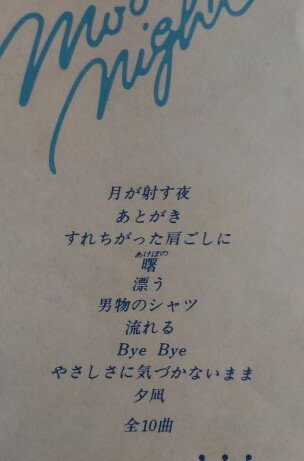 night
月が射す夜
あとがき
すれちがった肩ごしに
あけぼの
曙
漂う
男物のシャツ
流れる
Bye Bye
やさしさに気づかないまま
夕凪
全10曲